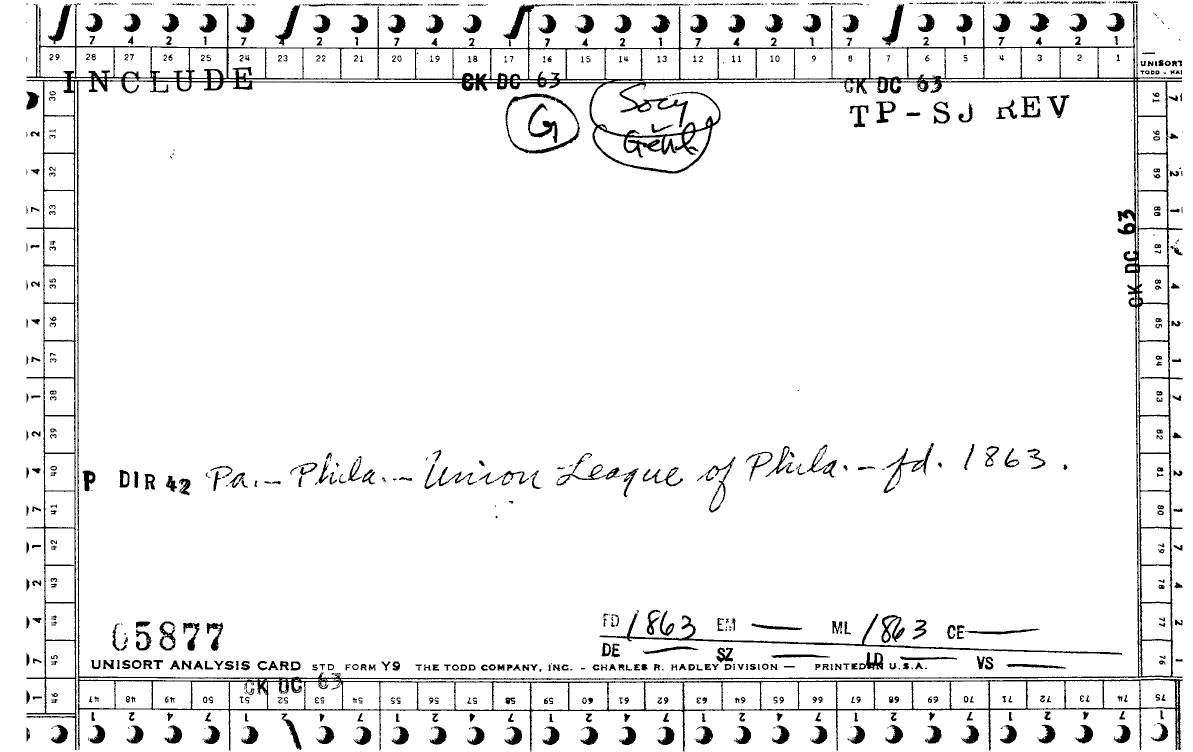 7 4 2 1 7 4 2 1 7 4 2 1 7 4 2 1 7 4 2 1 7 4 2 1 7 4 2 1
29 28 27 26 25 24 23 22 21 20 19 18 17 16 15 14 13 12 11 10 9 8 7 6 5 4 3 2 1
UNISORT
INCLUDE CK DC 63 CK DC 63
G Socy TP-SJ REV
Genl.
CK DC 63
P DIR 42 Pa. - Phila. - Union League of Phila. - fd. 1863.
05877
FD 1863 EM — ML 1863 CE —
DE — SZ — LD — VS —
UNISORT ANALYSIS CARD STD FORM Y9 THE TODD COMPANY, INC. - CHARLES R. HADLEY DIVISION — PRINTED IN U.S.A.
CK DC 63
30 31 32 33 34 35 36 37 38 39 40 41 42 43 44 45 46
47 48 49 50 51 52 53 54 55 56 57 58 59 60 61 62 63 64 65 66 67 68 69 70 71 72 73 74 75
91 90 89 88 87 86 85 84 83 82 81 80 79 78 77 76